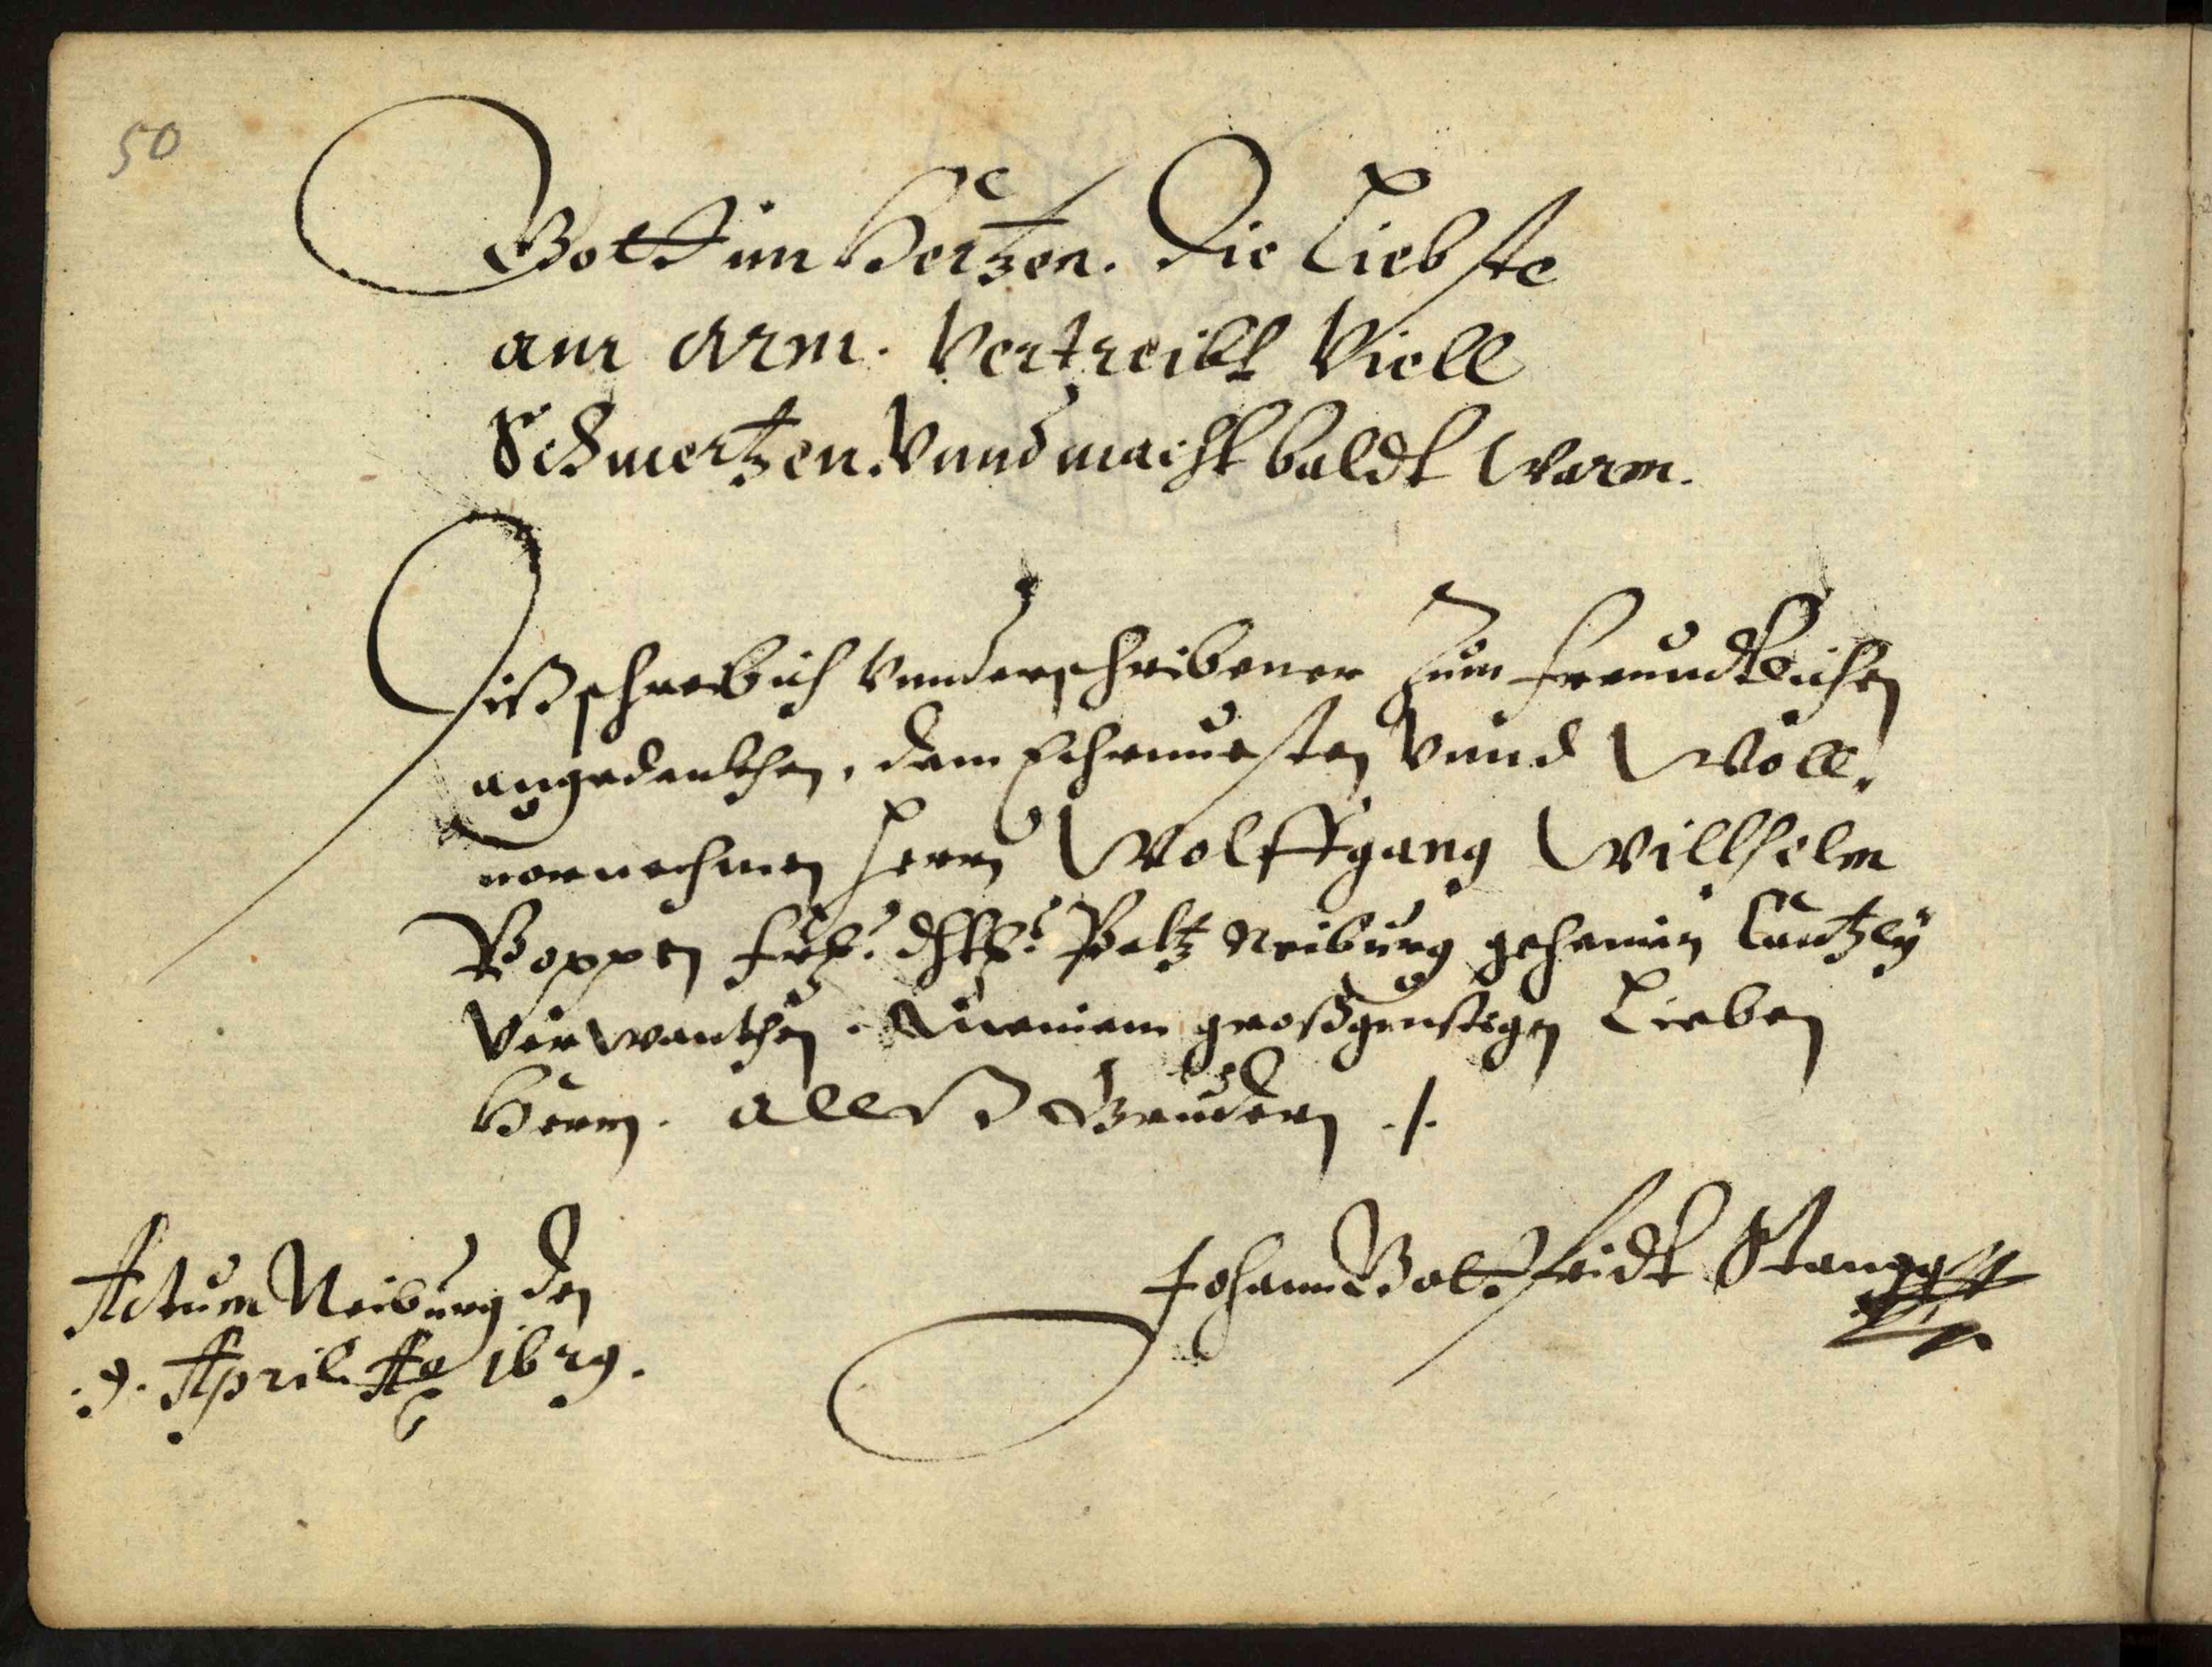 50
Gott im Hertzen. Die Liebste
am Arm. Vertreibt Viell
Schmertzen. Vnnd macht baldt Warm.
Diß schreib ich Vnnderschribener zum freundtlichen
angedenkhen, dem Ehrnuesten Vnnd Woll,
vornechmen Herrn Wolffgang Willhelm
Poppen frl: dhlt: Pfaltz Neiburg gehaimen Cantzley
Verwanthen. Meinem großgenstigen Lieben
Herrn. Allß Bruedern ./.
Johann Gottfridt Stangg
Actum Neiburg den
.9. April. Ao 1629.